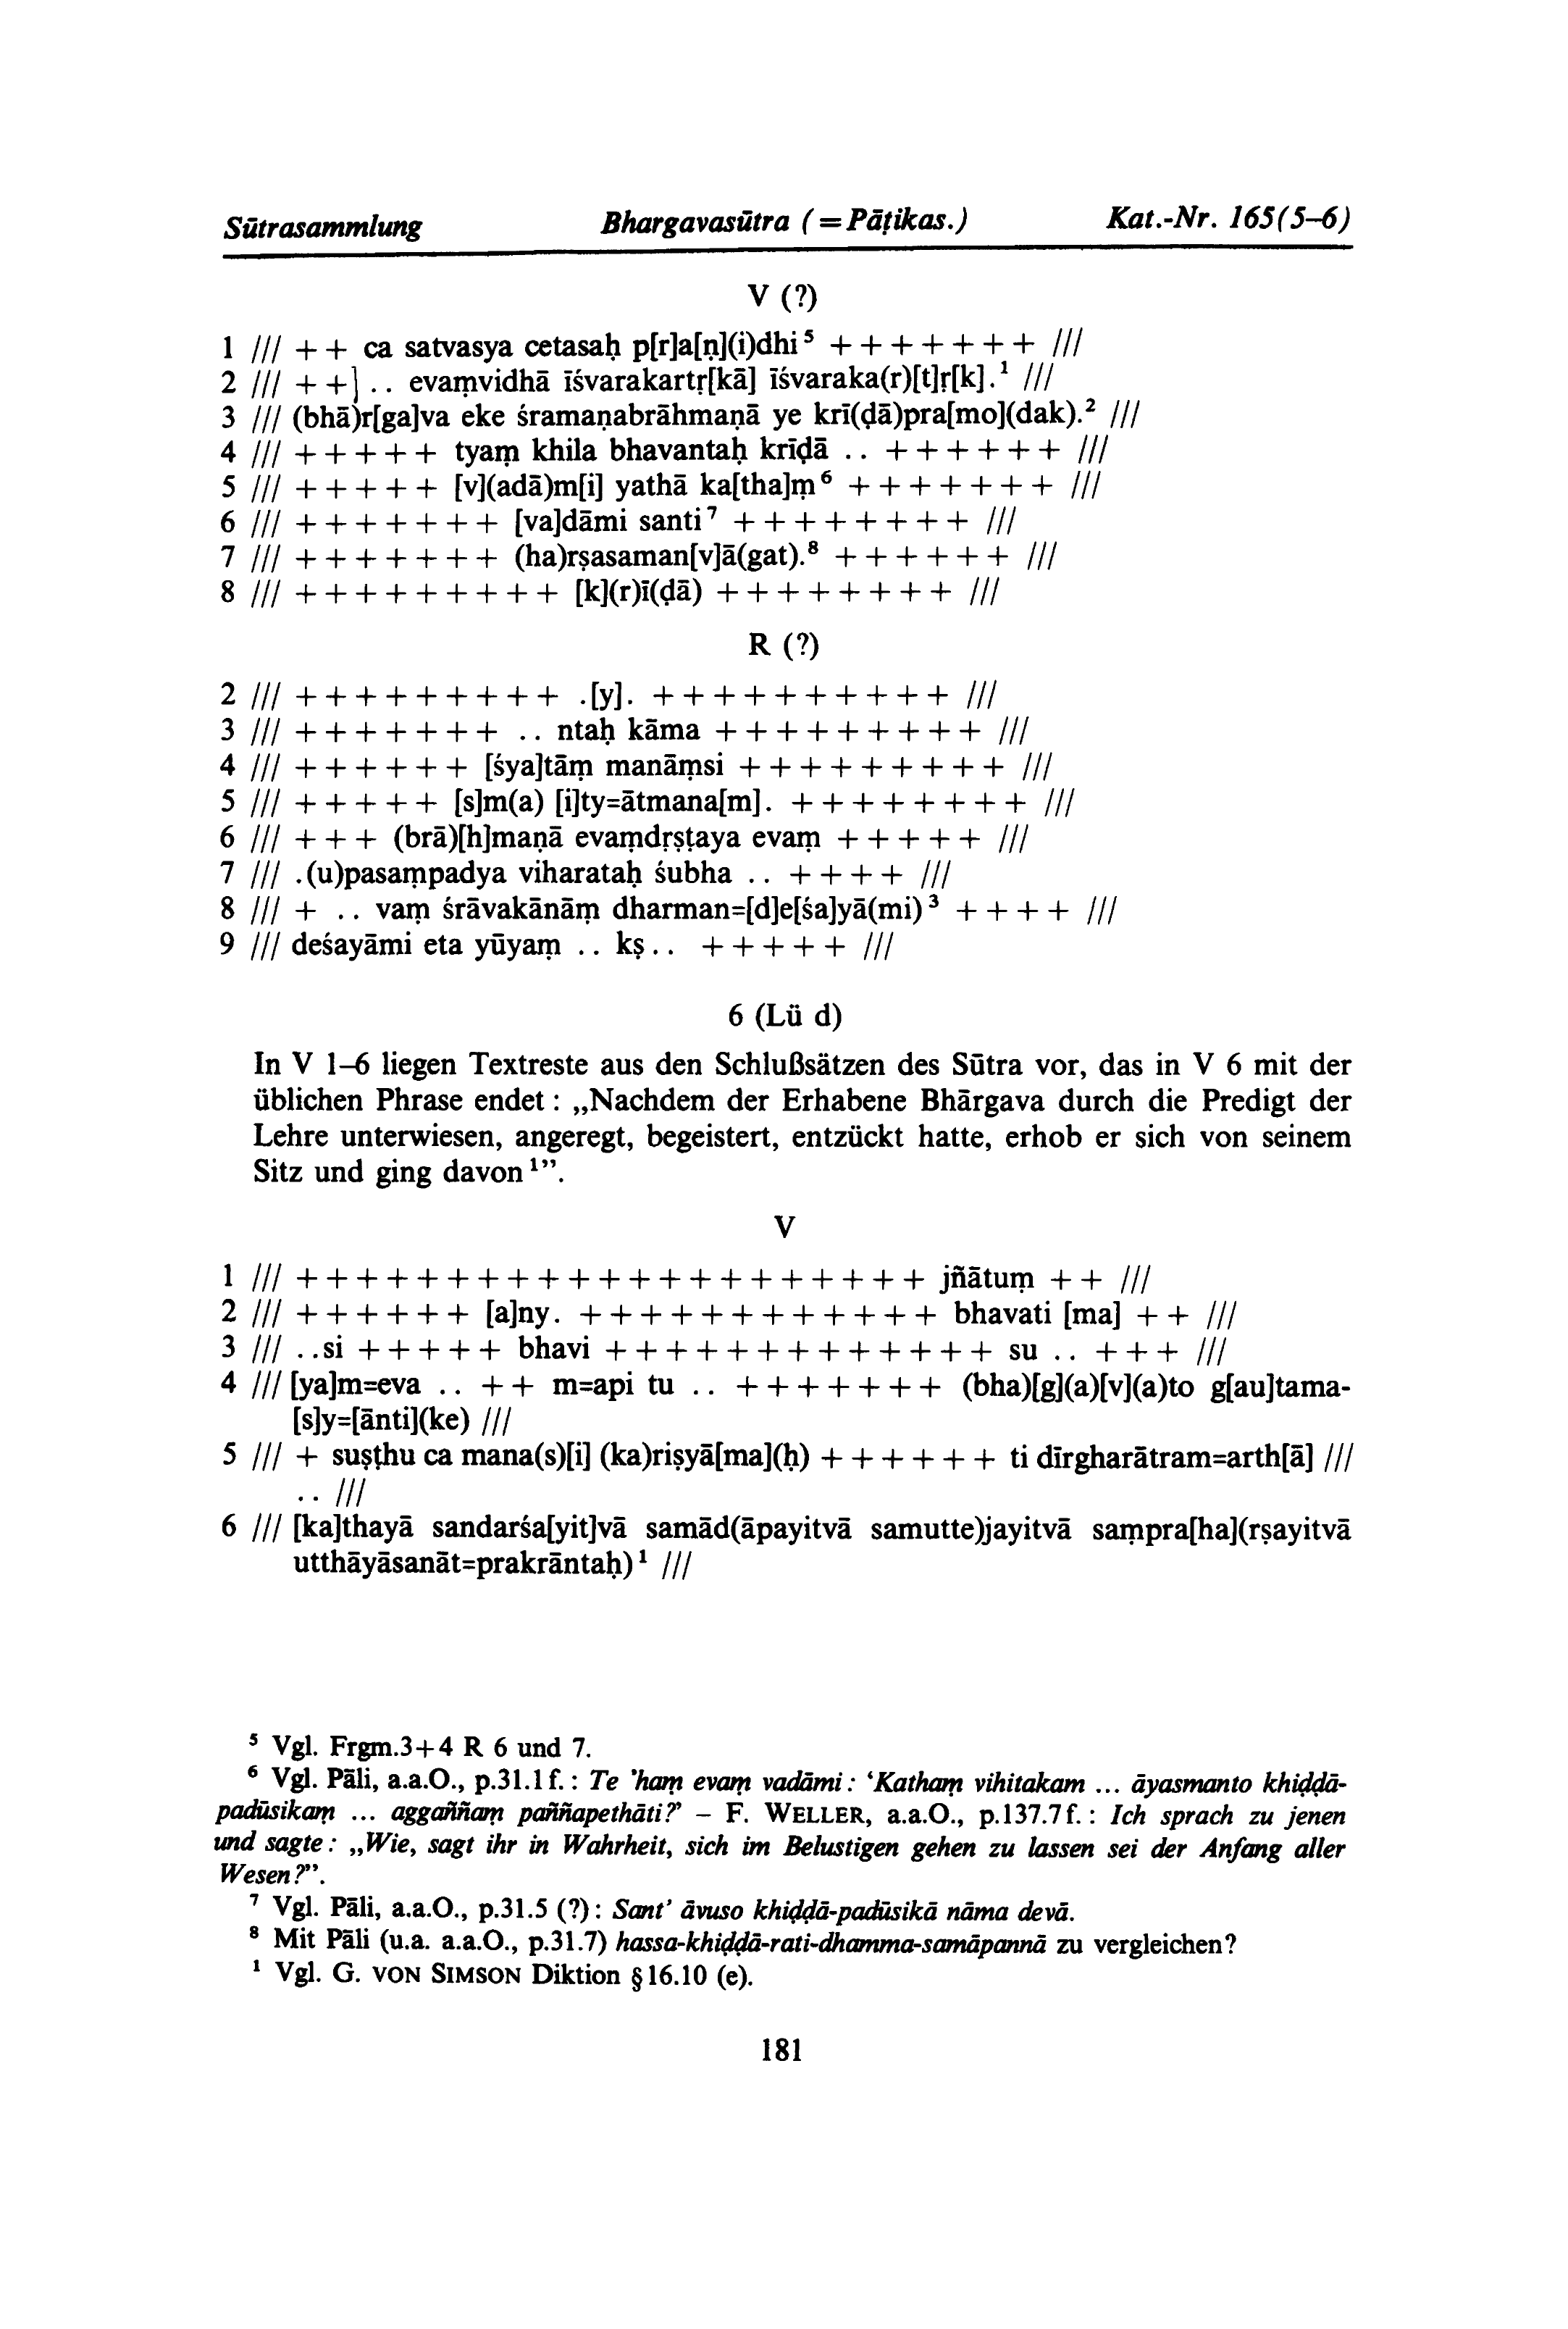 Sūtrasammlung Bhargavasūtra (=Pāṭikas.) Kat.-Nr. 165(5–6)
V (?)
1 /// + + ca satvasya cetasaḥ p[r]a[ṇ](i)dhi⁵ + + + + + + + ///
2 /// + +] .. evaṃvidhā īśvarakartṛ[kā] īśvaraka(r)[t]ṛ[k].¹ ///
3 /// (bhā)r[ga]va eke śramaṇabrāhmaṇā ye krī(ḍā)pra[mo](dak).² ///
4 /// + + + + + tyaṃ khila bhavantaḥ krīḍā .. + + + + + + ///
5 /// + + + + + [v](adā)m[i] yathā ka[tha]ṃ⁶ + + + + + + + ///
6 /// + + + + + + + [va]dāmi santi⁷ + + + + + + + + ///
7 /// + + + + + + + (ha)rṣasaman[v]ā(gat).⁸ + + + + + + ///
8 /// + + + + + + + + + [k](r)ī(ḍā) + + + + + + + + ///
R (?)
2 /// + + + + + + + + + .[y]. + + + + + + + + + + ///
3 /// + + + + + + + .. ntaḥ kāma + + + + + + + + + ///
4 /// + + + + + + [śya]tāṃ manāṃsi + + + + + + + + + ///
5 /// + + + + + [s]m(a) [i]ty=ātmana[m]. + + + + + + + + ///
6 /// + + + (brā)[h]maṇā evaṃdṛṣṭaya evaṃ + + + + + ///
7 /// .(u)pasaṃpadya viharataḥ śubha .. + + + + ///
8 /// + .. vaṃ śrāvakānāṃ dharman=[d]e[śa]yā(mi)³ + + + + ///
9 /// deśayāmi eta yūyaṃ .. kṣ.. + + + + + ///
6 (Lü d)
In V 1–6 liegen Textreste aus den Schlußsätzen des Sūtra vor, das in V 6 mit der
üblichen Phrase endet: „Nachdem der Erhabene Bhārgava durch die Predigt der
Lehre unterwiesen, angeregt, begeistert, entzückt hatte, erhob er sich von seinem
Sitz und ging davon¹”.
V
1 /// + + + + + + + + + + + + + + + + + + + + + jñātuṃ + + ///
2 /// + + + + + + [a]ny. + + + + + + + + + + + + bhavati [ma] + + ///
3 /// ..si + + + + + bhavi + + + + + + + + + + + + + su .. + + + ///
4 /// [ya]m=eva .. + + m=api tu .. + + + + + + + (bha)[g](a)[v](a)to g[au]tama-
[s]y=[ānti](ke) ///
5 /// + suṣṭhu ca mana(s)[i] (ka)riṣyā[ma](ḥ) + + + + + + ti dīrgharātram=arth[ā] ///
.. ///
6 /// [ka]thayā sandarśa[yit]vā samād(āpayitvā samutte)jayitvā saṃpra[ha](rṣayitvā
utthāyāsanāt=prakrāntaḥ)¹ ///
⁵ Vgl. Frgm.3+4 R 6 und 7.
⁶ Vgl. Pāli, a.a.O., p.31.1f.: Te ’haṃ evaṃ vadāmi: ‘Kathaṃ vihitakam ... āyasmanto khiḍḍā-
padūsikaṃ ... aggaññaṃ paññapethāti?’ – F. WELLER, a.a.O., p.137.7f.: Ich sprach zu jenen
und sagte: „Wie, sagt ihr in Wahrheit, sich im Belustigen gehen zu lassen sei der Anfang aller
Wesen?”.
⁷ Vgl. Pāli, a.a.O., p.31.5 (?): Sant’ āvuso khiḍḍā-padūsikā nāma devā.
⁸ Mit Pāli (u.a. a.a.O., p.31.7) hassa-khiḍḍā-rati-dhamma-samāpannā zu vergleichen?
¹ Vgl. G. VON SIMSON Diktion §16.10 (e).
181